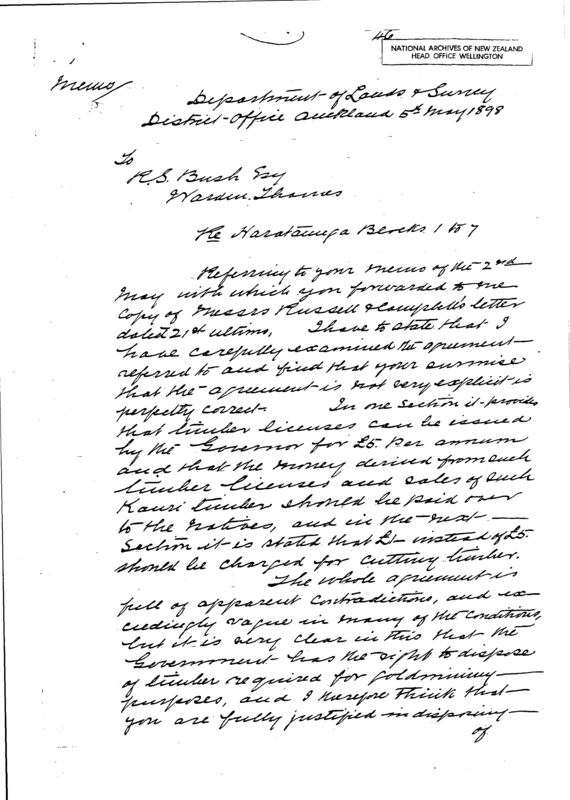 46
NATIONAL ARCHIVES OF NEW ZEALAND
HEAD OFFICE WELLINGTON
Memo
Department of Lands & Survey
District Office Auckland 5th May 1898
To
R.S. Bush Esq
Warden. Thames
Re Harataunga Blocks 1 to 7
Referring to your memo of the 2nd
May with which you forwarded to me
copy of Messrs Russell & Campbell's letter
dated 21st ultimo, I have to state that I
have carefully examined the agreement
referred to and find that your surmise
that the agreement is not very explicit is
perfectly correct. In one section it provides
that timber licenses can be issued
by the Governor for £5. per annum
and that the money derived from such
timber licenses and sales of such
Kauri timber should be paid over
to the natives, and in the next
section it is stated that £1 instead of £5.
should be charged for cutting timber.
The whole agreement is
full of apparent contradictions, and ex
ceedingly vague in many of the conditions,
but it is very clear in this that the
Government has the right to dispose
of timber required for goldmining
purposes, and I therefore think that
you are fully justified in disposing
of